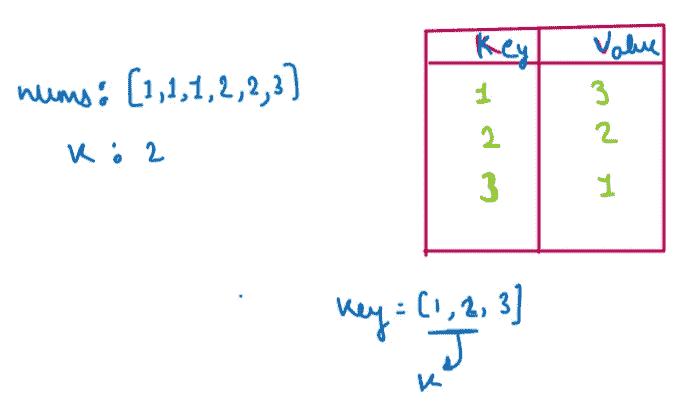 nums: [1,1,1,2,2,3]
K : 2
Key Value
1 3
2 2
3 1
Key = [1, 2, 3]
K